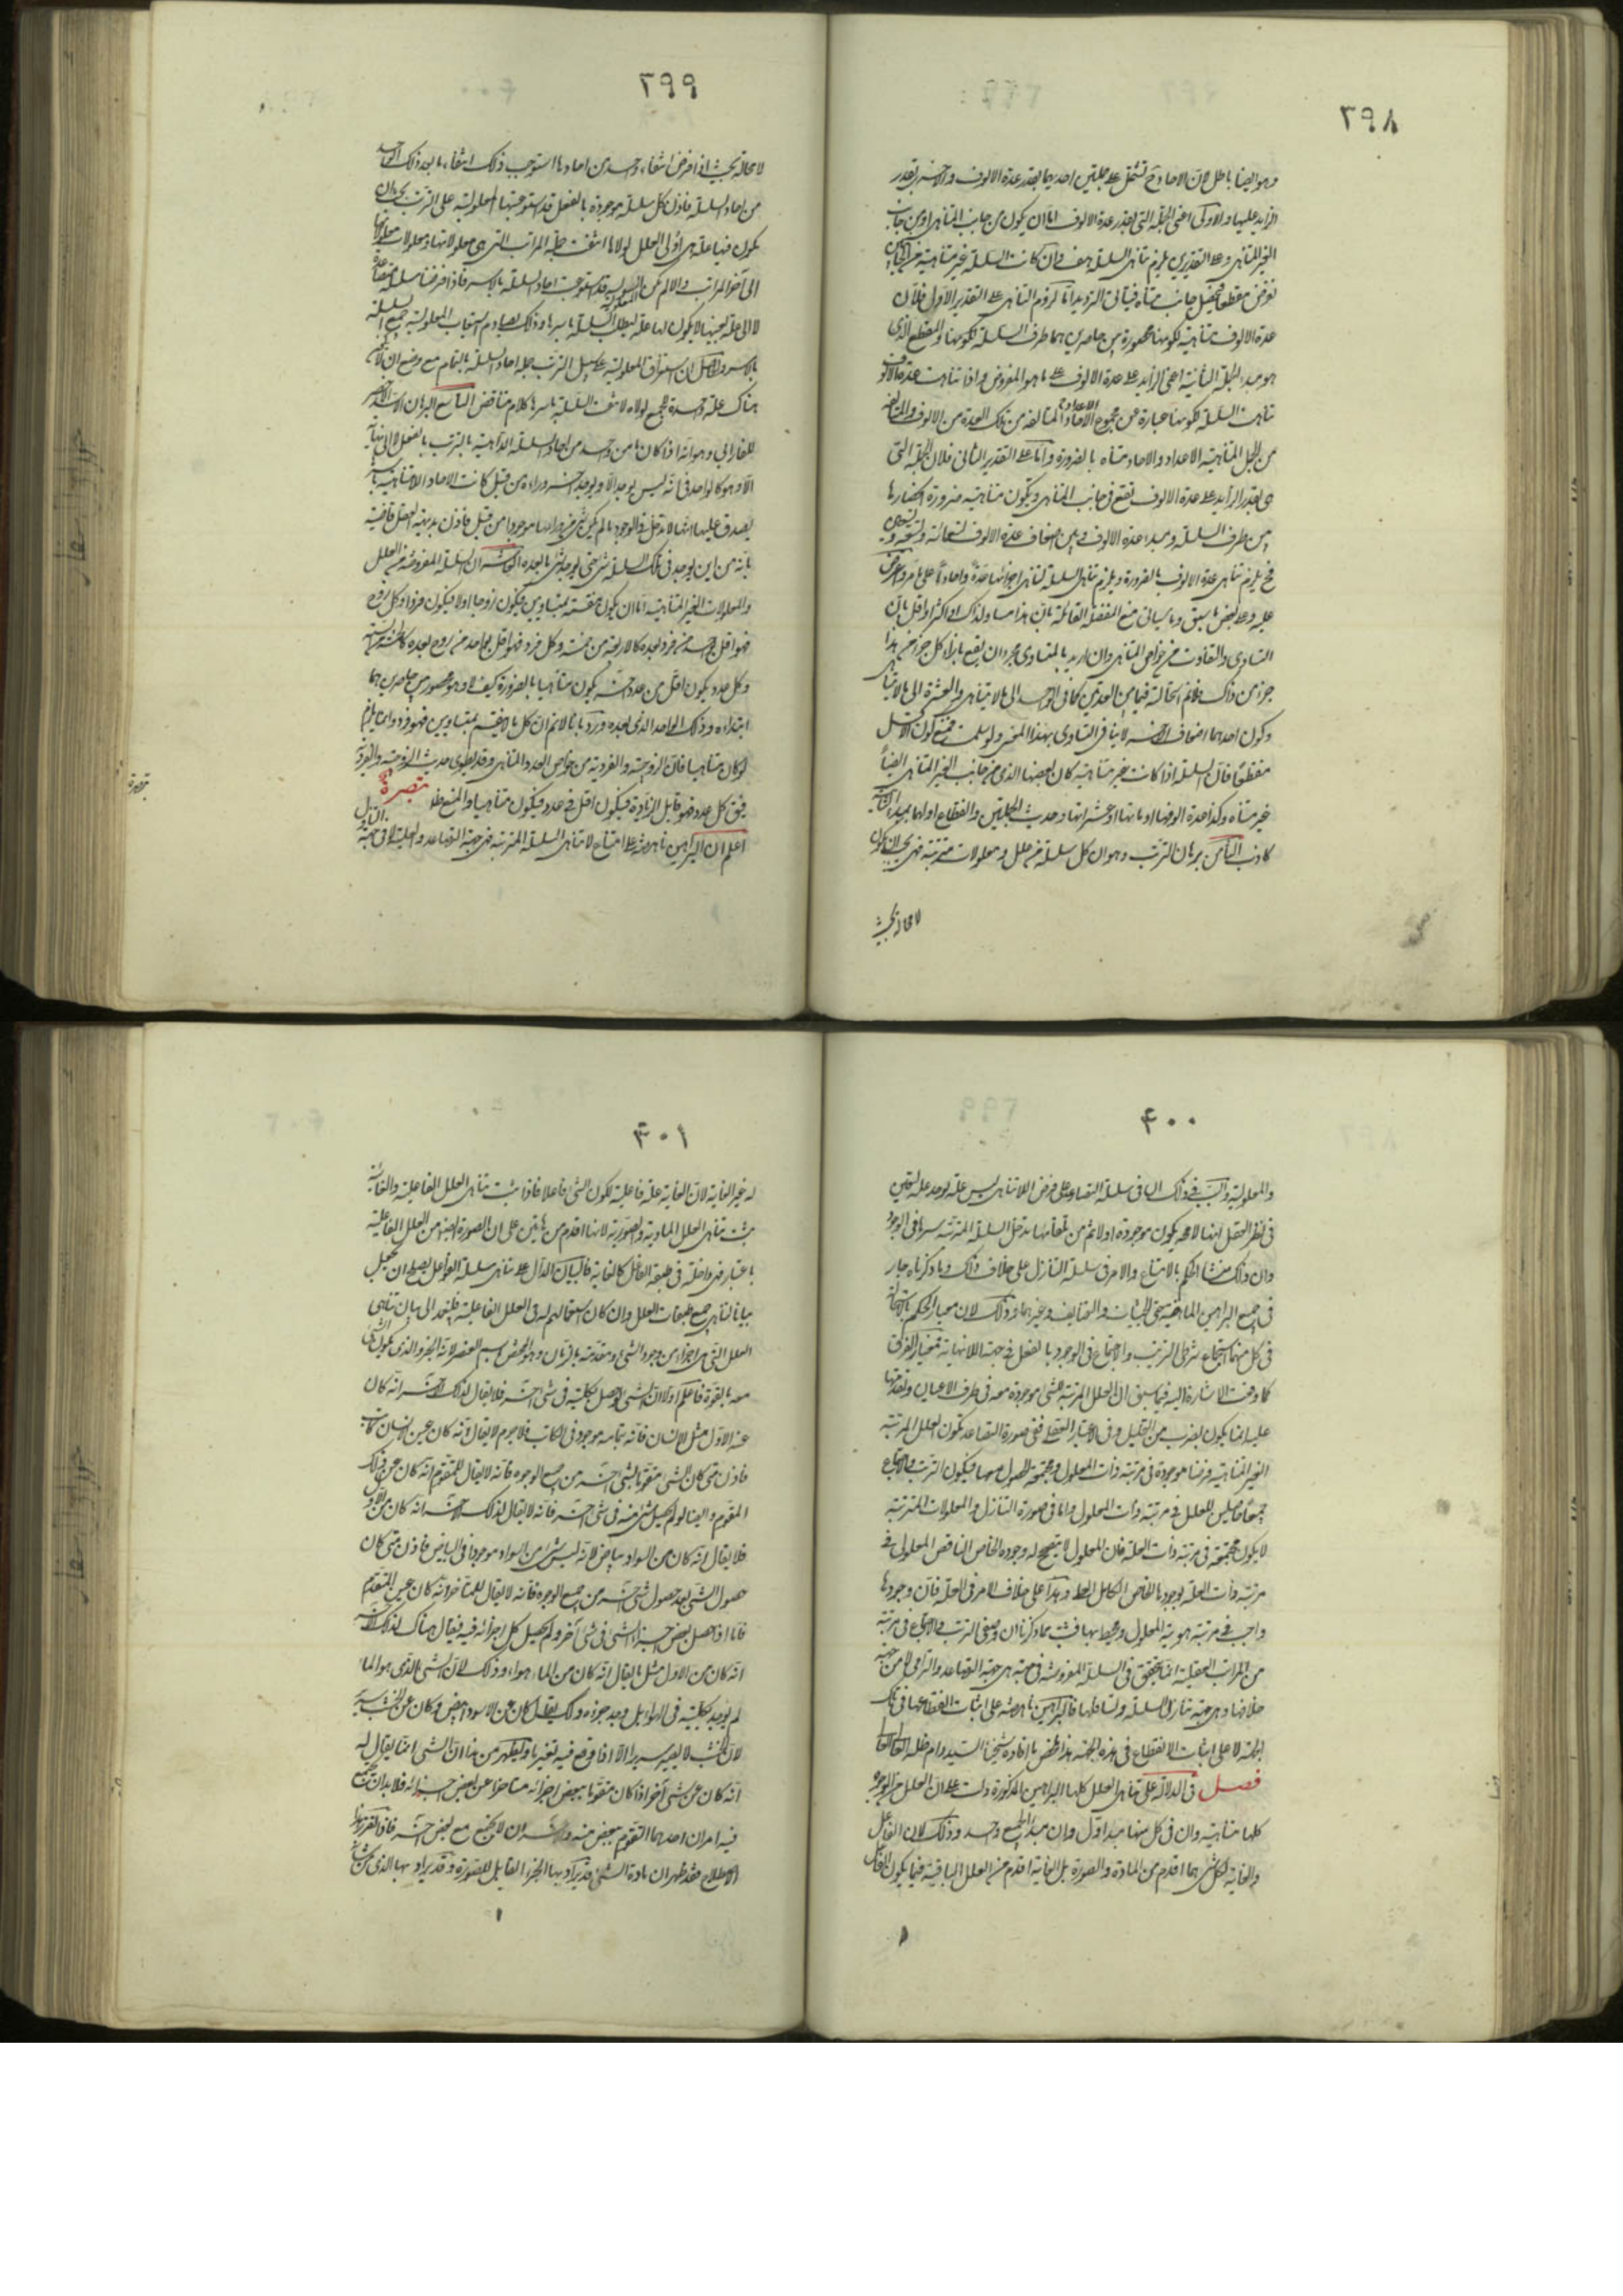 ٣٩٨
وهو ايضا باطل لان الاحاد ح تشتمل على جملتين احديهما بقدر عدة الالوف والاخرى بقدر
الزايد عليها والاولى اعنى الجملة التى بقدر عدة الالوف اما ان يكون من جانب المتناهى او من جانب
الغير المتناهى وعلى التقديرين يلزم تناهى السلسلة هف وان كانت السلسلة غير متناهية من الجانبين
نفرض مقطعا فيحصل جانب متناه فيتأتى الترديد اما لزوم التناهى على التقدير الاول فلان
عدة الالوف متناهية لكونها محصورة بين حاصرين هما طرف السلسلة والمقطع الذى
هو مبدء الجملة الثانية اعنى الزايد على عدة الالوف على ما هو المفروض واذا تناهت عدة الالوف
تناهت السلسلة لكونها عبارة عن مجموع الاحاد المتألفة من تلك العدة من الالوف والمتألف
من الجمل المتناهية الاعداد والاحاد متناه بالضرورة واما على التقدير الثانى فلان الجملة التى
هى بقدر الزايد على عدة الالوف تقع فى جانب المتناهى ويكون متناهية ضرورة انحصارها
بين طرف السلسلة ومبدء عدة الالوف وهى اضعاف عدة الالوف تسعمائة وتسعة وتسعين
فح يلزم تناهى عدة الالوف بالضرورة ويلزم تناهى السلسلة لتناهى اجزائها عدة واحادا على ما مر واعترض
عليه وعلى بعض ما سبق وما سيأتى منع المنفصلة القائلة بان هذا مساو لذلك او اكثر او اقل بان
التساوى والتفاوت من خواص المتناهى وان اريد بالتساوى مجرد ان يقع بازاء كل جزء من هذا
جزء من ذاك فلا نم استحالته فيما بين العدتين كما فى الواحد الى ما لا يتناهى والعشرة الى ما لا يتناهى
وكون احدهما اضعاف الاخر لا ينافى التساوى بهذا المعنى ولو سلمت فمنع كون الاقل
منقطعا فان السلسلة اذا كانت غير متناهية كان بعضها الذى من جانب الغير المتناهى ايضا
غير متناه وكذا عدة الوفها او مآتها او عشراتها وحديث الجملتين وانقطاع اولهما بمبدء الثانية
كاذب الثامن برهان الترتب وهو ان كل سلسلة من علل ومعلولات مترتبة فهى يجب ان يكون
لا محالة بحيث
٣٩٩
لا محالة بحيث اذا فرض انتفاء واحد من احادها استوجب ذلك انتفاء ما بعد ذلك الواحد
من احاد السلسلة فاذن كل سلسلة موجودة بالفعل قد استوعبتها المعلولية على الترتب يجب ان
يكون فيها علة هى اولى العلل لولاها انتفت جملة المراتب التى هى معلولاتها ومعلولات معلولاتها
الى آخر المراتب والا لم يكن المعلولية قد استوعبت احاد السلسلة بالاسر فاذا فرضنا سلسلة متصاعدة
لا الى علة بعينها لا يكون لها علة لبطلت السلسلة باسرها وذلك يصادم استيعاب المعلولية جميع السلسلة
بالاسر والحاصل ان استغراق المعلولية على سبيل الترتب جملة احاد السلسلة بالتمام مع وضع ان لا يكون
هناك علة واحدة للجميع لولاه لانتفت السلسلة باسرها كلام متناقض التاسع البرهان الاسد الاخصر
للفارابى وهو انه اذا كان ما من واحد من احاد السلسلة الذاهبة بالترتب بالفعل لا الى نهاية
الا وهو كالواحد فى انه ليس يوجد الا ويوجد آخر ورائه من قبل كانت الاحاد اللامتناهية باسرها
يصدق عليها انها لا تدخل فى الوجود ما لم يكن شئ من ورائها موجودا من قبل فاذن بديهة العقل قاضية
بانه من اين يوجد فى تلك السلسلة شئ حتى يوجد شئ ما بعده العاشر ان السلسلة المفروضة من العلل
والمعلولات الغير المتناهية اما ان يكون منقسمة بمتساويين فيكون زوجا او لا فيكون فردا وكل زوج
فهو اقل بواحد من فرد بعده كالاربعة من خمسة وكل فرد فهو اقل بواحد من زوج بعده كالخمسة من ستة
وكل عدد يكون اقل من عدد آخر يكون متناهيا بالضرورة كيف لا وهو محصور بين حاصرين هما
ابتداءه وذلك الواحد الذى بعده ورد بانا لا نم ان كل ما لا ينقسم بمتساويين فهو فرد وانما يلزم
لو كان متناهيا فان الزوجية والفردية من خواص العدد المتناهى وقد يطوى حديث الزوجية والفردية
فيق كل عدد فهو قابل الزيادة فيكون اقل من عدد فيكون متناهيا والمنع ظ تبصرة
اعلم ان البراهين ناهضة على امتناع لا تناهى السلسلة المترتبة فى جهة التصاعد والعلية لا فى جهة التنازل
تبصرة
٤٠٠
والمعلولية والسبب فى ذلك ان فى سلسلة التصاعد على فرض اللاتناهى ليس علة يوجد علة يتعين
فى نظر العقل انها لا محة يكون موجودة اولا ثم من تلقائها تدخل السلسلة المترتبة باسرها فى الوجود
وان ذلك منشأ الحكم بالامتناع والامر فى سلسلة التنازل على خلاف ذلك وما ذكرناه جار
فى جميع البراهين الماضية حتى الحيثيات والتضايف وغيرهما وذلك لان معيار الحكم بالاستحالة
فى كل منهما استجماع شرطى الترتيب والاجتماع فى الوجود بالفعل فى جهة اللانهاية فمعيار الفرق
كما وقعت الاشارة اليه فيما سبق ان العلل المرتبة للشئ موجودة معه فى ظرف الاعيان وتقدمها
عليه انما يكون بضرب من التحليل وفى الاعتبار العقلى ففى صورة التصاعد تكون العلل المرتبة
الغير المتناهية فرضا موجودة فى مرتبة ذات المعلول ومجتمعة الحصول معها فيكون الترتب والاجتماع
جميعا حاصلين للعلل فى مرتبة ذات المعلول واما فى صورة التنازل والمعلولات المترتبة
لا يكون مجتمعة فى مرتبة ذات العلة فان المعلول لا يتصحح له وجوده الخاص الناقص المعلولى فى
مرتبة ذات العلة بوجودها الخاص الكامل العلى وهذا على خلاف الامر فى العلة فان وجودها
واجب فى مرتبة هوية المعلول ومحيط بها فثبت مما ذكرنا ان وصفى الترتب والاجتماع فى مرتبة
من المراتب العقلية انما يتحقق فى السلسلة المفروضة فى جهة هى جهة التصاعد والترامى لا من جهة
خلافها وهى جهة تنازل السلسلة وتسافلها فالبراهين ناهضة على اثبات انقطاعها فى تلك
الجهة لا على اثبات الانقطاع فى هذه الجهة هذا ملخص ما افاده شيخنا السيد دام ظله العالى
فصل فى الدلالة على تناهى العلل كلها البراهين المذكورة دلت على ان العلل من الوجوه
كلها متناهية وان فى كل منها مبدا اول وان مبدا الجميع واحد وذلك لان الفاعل
والغاية لكل شئ هما اقدم من المادة والصورة بل الغاية اقدم من العلل الباقية فيما يكون الفاعل
٤٠١
له غير الغاية لان الغاية علة فاعلية لكون الشئ فاعلا فاذا ثبت تناهى العلل الفاعلية والغائية
يثبت تناهى العلل المادية والصورية لانها اقدم من هاتين على ان الصورة ايضا من العلل الفاعلية
باعتبار فهى داخلة فى طبقة الفاعل كالغاية فالبيان الدال على تناهى سلسلة الفواعل يصلح ان يجعل
بيانا لتناهى جميع طبقات العلل وان كان استعمالهم له فى العلل الفاعلية فلنعد الى بيان تناهى
العلل التى هى اجزاء من وجود الشئ ومتقدمة بالزمان وهو المخصص باسم العنصر لانه الجزء الذى يكون الشئ
معه بالقوة فاعلم اولا ان الشئ لا يحصل بكليته فى شئ آخر فلا يقال لذلك الاخر انه كان
عن الاول مثل الانسان فانه بتمامه موجود فى الكاتب فلا جرم لا يقال انه كان عن الانسان كاتب
فاذن متى كان الشئ متقوما بشئ آخر من جميع الوجوه فانه لا يقال للمتقوم انه كان عن ذلك
المقوم وايضا لو لم يحصل شئ منه فى شئ آخر فانه لا يقال لذلك الاخر انه كان من الاول
فلا يقال انه كان من السواد بياض لانه ليس شئ من السواد موجودا فى البياض فاذن متى كان
حصول الشئ بعد حصول شئ آخر من جميع الوجوه فانه لا يقال للمتأخر انه كان عن المتقدم
فاما اذا حصل بعض اجزاء الشئ فى شئ آخر ولم يحصل كل اجزائه فيه فيقال هناك لذلك الاخر
انه كان من الاول مثل ما يقال انه كان من الماء هواء وذلك لان الشئ الذى هو الماء
لم يوجد بكليته فى الهواء بل وجد جزءه وكك يقال كان عن الاسود ابيض وكان عن الخشب سرير
لان الخشب لا يصير سريرا الا اذا وقع فيه تغير ما فيظهر من هذا ان الشئ انما يقال له
انه كان عن شئ آخر اذا كان متقوما ببعض اجزائه متأخرا عن بعض اجزائه فلا بد ان يجتمع
فيه امران احدهما التقوم ببعض منه والاخر ان لا يجتمع مع بعض آخر فاذا تقرر هذا
الاصطلاح فقد ظهر ان مادة الشئ قد يراد بها الجزء القابل للصورة وقد يراد بها الذى من شأنه